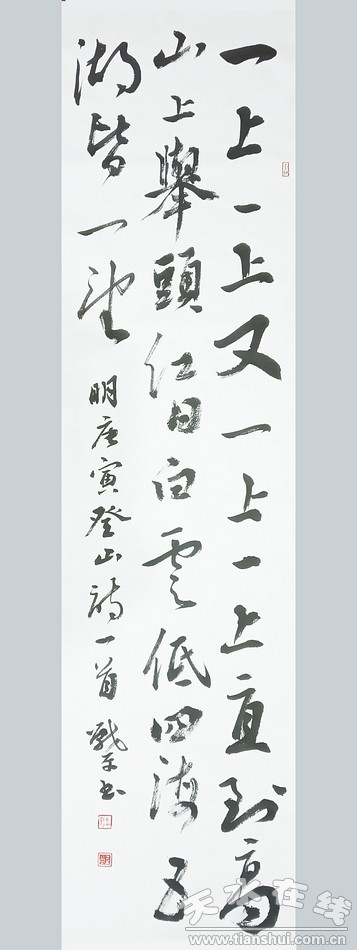 一上一上又一上一上直到高
山上舉頭紅日白雲低四海五
湖皆一望
明唐寅登山詩一首 戰平書
天水在线
www.tianshui.com.cn